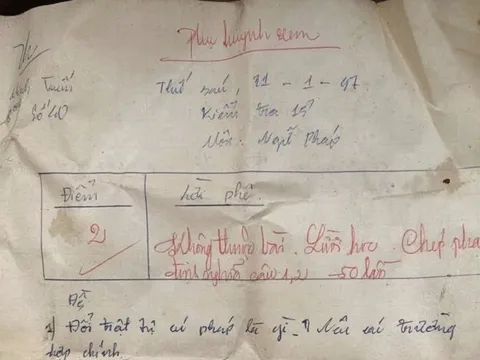 Phụ huynh xem
Thứ sáu, 31 - 1 - 97
Số 40
Kiểm tra 15'
Môn: Ngữ Pháp
Điểm
Lời phê
2
Không thuộc bài. Lười học. Chép phạt
định nghĩa câu 1, 2 - 50 lần
Đề
1) Đổi trật tự cú pháp là gì? Nêu các trường
hợp chính